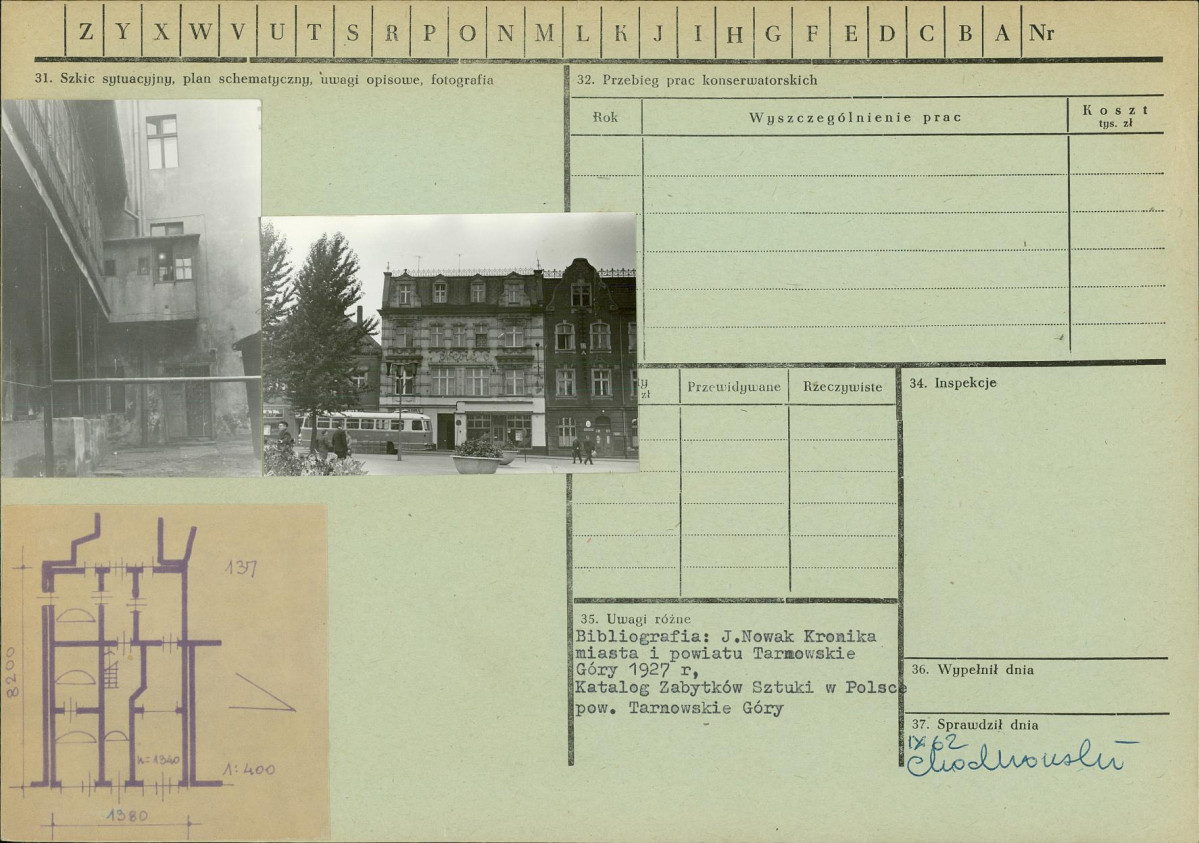 Z Y X W V U T S R P O N M L K J I H G F E D C B A Nr
31. Szkic sytuacyjny, plan schematyczny, uwagi opisowe, fotografia
32. Przebieg prac konserwatorskich
Rok
Wyszczególnienie prac
Koszt
tys. zł
zł
Przewidywane
Rzeczywiste
34. Inspekcje
137
8200
h=1340
1:400
1380
35. Uwagi różne
Bibliografia: J.Nowak Kronika
miasta i powiatu Tarnowskie
Góry 1927 r,
Katalog Zabytków Sztuki w Polsce
pow. Tarnowskie Góry
36. Wypełnił dnia
37. Sprawdził dnia
IX 62